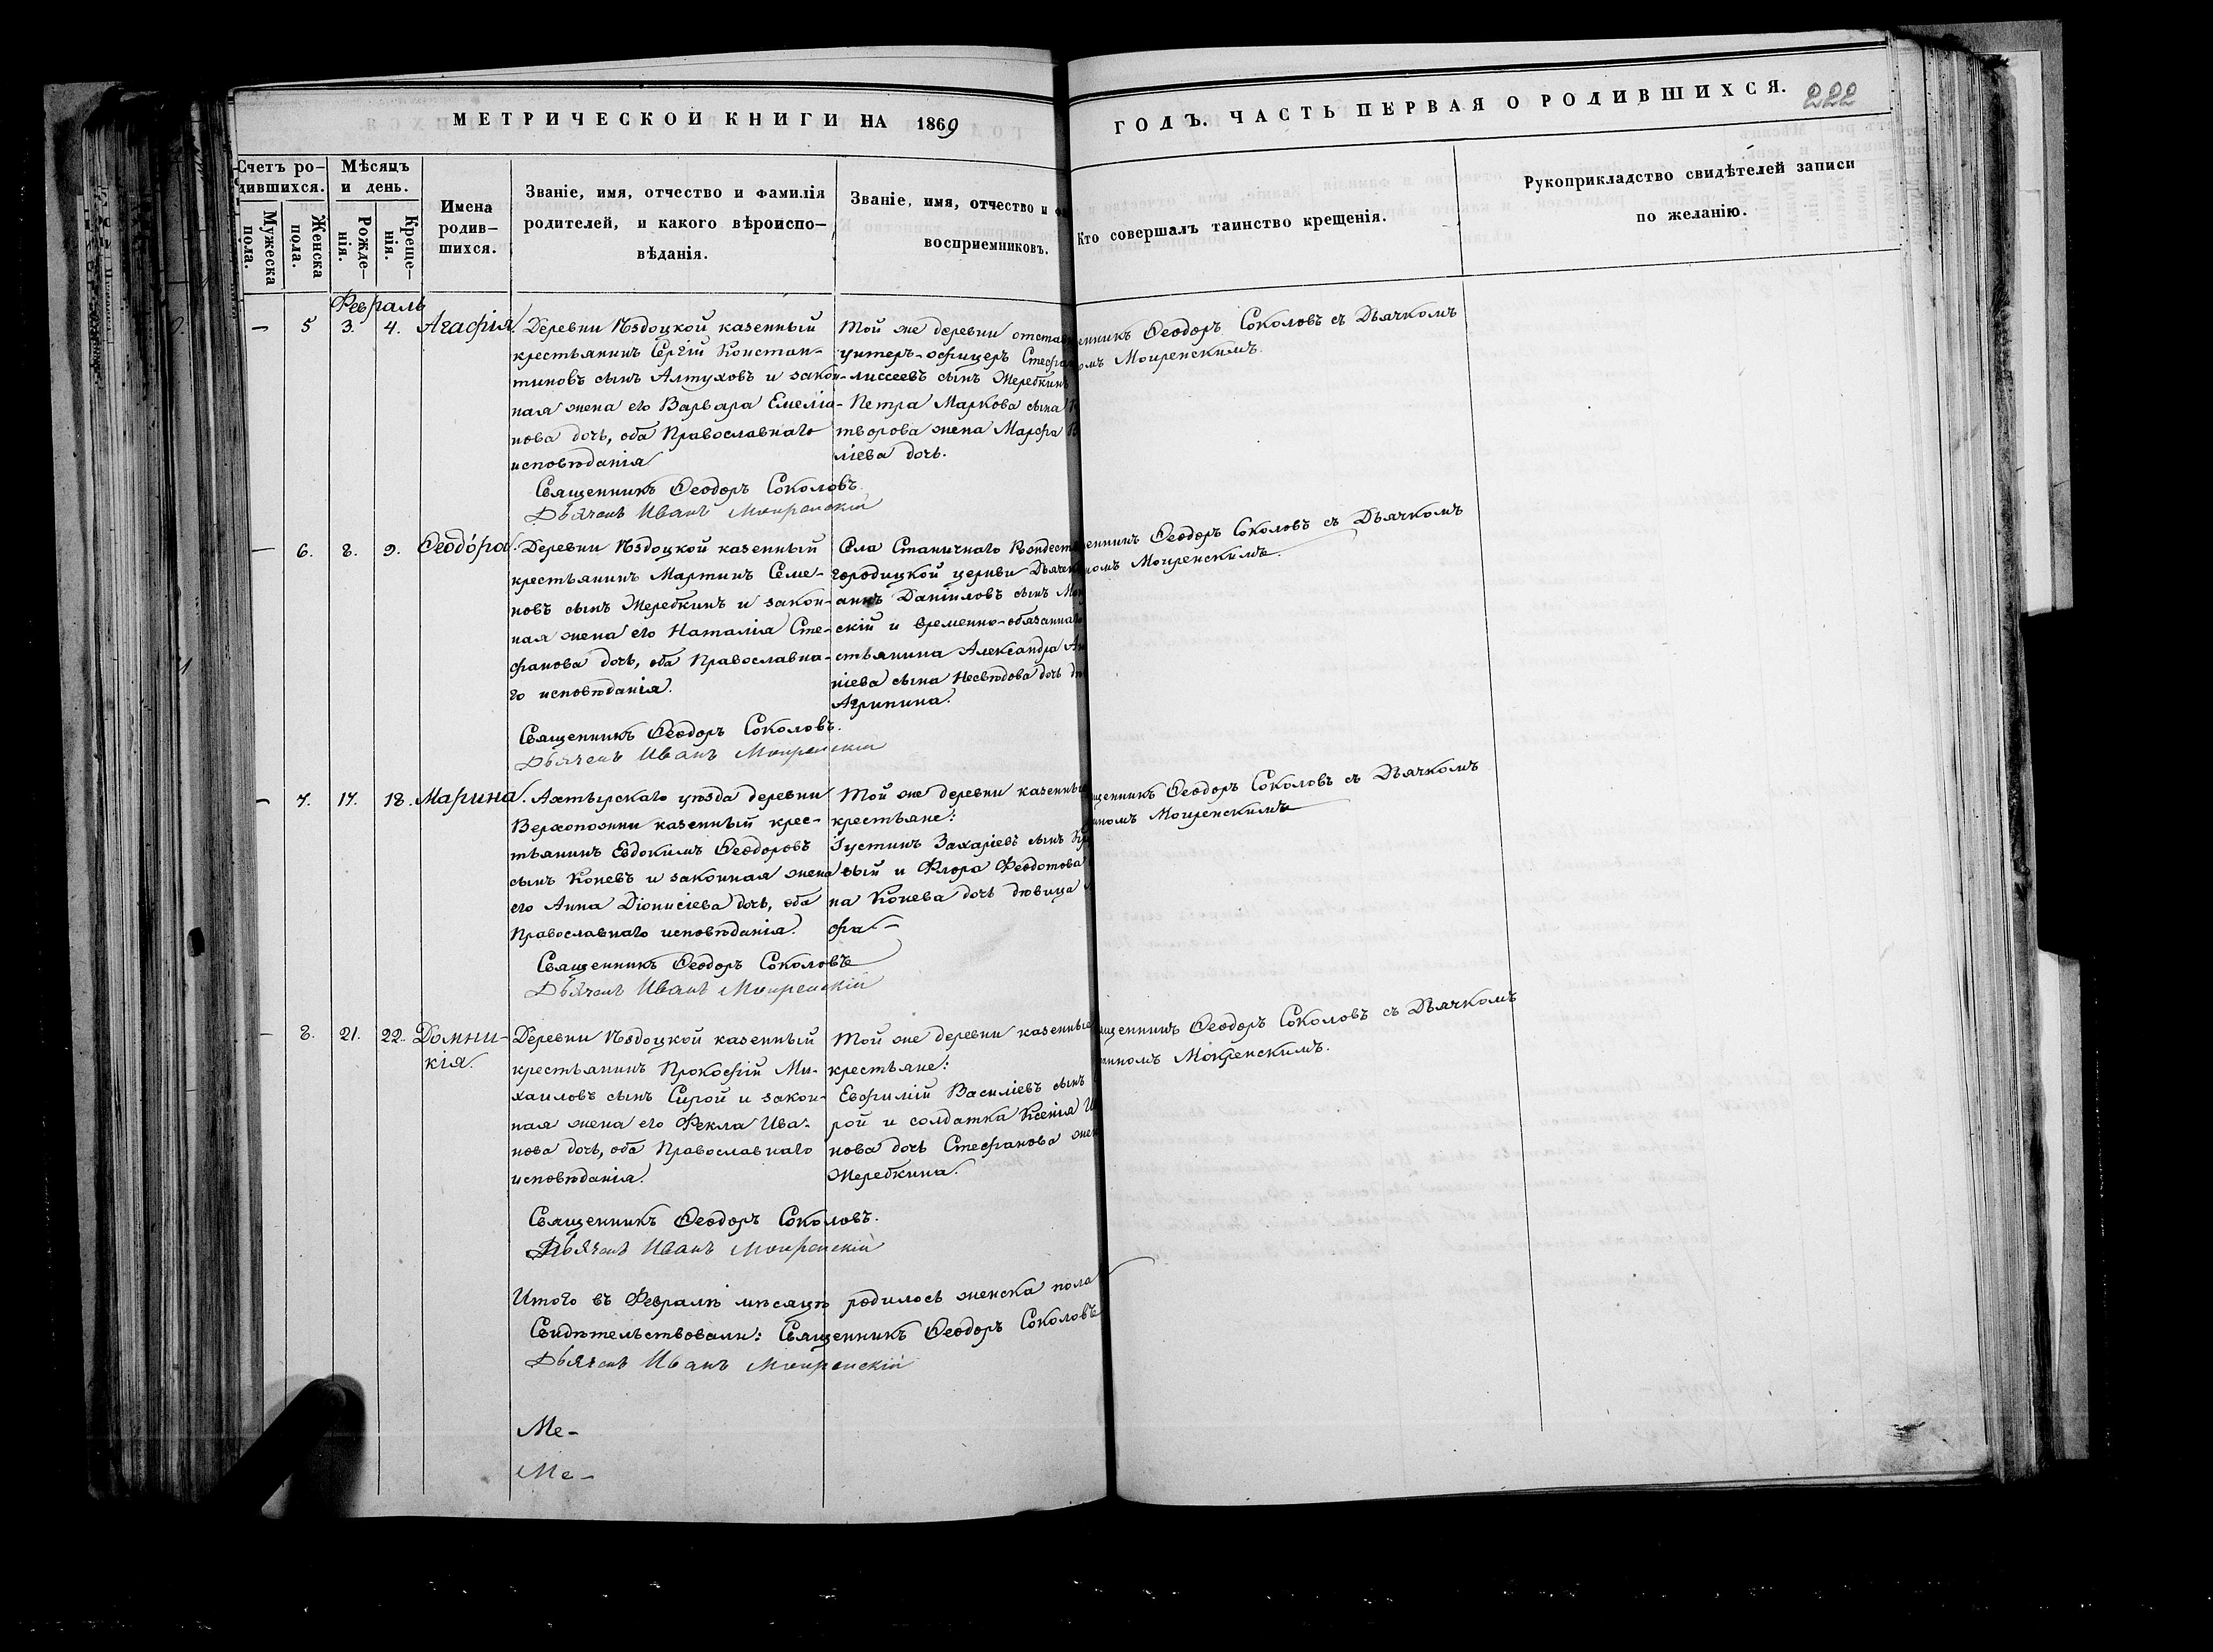 МЕТРИЧЕСКОЙ КНИГИ НА 1869
ГОДЪ. ЧАСТЬ ПЕРВАЯ О РОДИВШИХСЯ.
222
Счетъ ро-
дившихся.
Мужеска
пола.
Женска
пола.
Мѣсяцъ
и день.
Рожде-
нія.
Креще-
нія.
Имена
родив-
шихся.
Званіе, имя, отчество и фамилія
родителей, и какого вѣроиспо-
вѣданія.
Званіе, имя, отчество и
восприемниковъ.
Кто совершалъ таинство крещенія.
Рукоприкладство свидѣтелей записи
по желанію.
Февраль
— 5 3. 4. Агафія.
Деревни Поздоцкой казенный
крестьянинъ Сергій Констан-
тиновъ сынъ Алтуховъ и закон-
ная жена его Варвара Емеліа-
нова дочь, оба Православнаго
исповѣданія
Священникъ Ѳеодоръ Соколовъ.
Дьячекъ Иванъ Мокренскій
Той же деревни отстав
унтеръ-офицеръ Стефан
лиссеевъ сынъ Жеребкинъ
Петра Маркова сына
творова жена Марфа
ліева дочь.
енникъ Ѳеодоръ Соколовъ съ Дьячкомъ
омъ Мокренскимъ.
— 6. 8. 9. Ѳеодо́ра.
Деревни Поздоцкой казенный
крестьянинъ Мартинъ Семе-
новъ сынъ Жеребкинъ и закон-
ная жена его Наталія Сте-
фанова дочь, оба Православна-
го исповѣданія.
Священникъ Ѳеодоръ Соколовъ.
Дьячекъ Иванъ Мокренскій
Села Станичнаго Рождест
городицкой церкви Дьячек
аннъ Даніиловъ сынъ Мок
скій и временно-обязаннаго
стьянина Александра
ніева сына Несвѣдова дочь
Агрипина.
енникъ Ѳеодоръ Соколовъ съ Дьячкомъ
номъ Мокренскимъ.
— 7. 17. 18. Марина.
Ахтырскаго уѣзда деревни
Верхопожни казенный крес-
тьянинъ Евдокимъ Ѳеодоровъ
сынъ Коневъ и законная жена
его Анна Діонисіева дочь, оба
Православнаго исповѣданія.
Священникъ Ѳеодоръ Соколовъ
Дьячекъ Иванъ Мокренскій
Той же деревни казенные
крестьяне:
Іустинъ Захаріевъ сынъ
вый и Флора Феодотова
на Конева дочь дѣвица
фа.—
щенникъ Ѳеодоръ Соколовъ съ Дьячкомъ
нномъ Мокренскимъ
— 8. 21. 22. Домни-
кія.
Деревни Поздоцкой казенный
крестьянинъ Прокофій Ми-
хаиловъ сынъ Сирой и закон-
ная жена его Фекла Ива-
нова дочь, оба Православнаго
исповѣданія.
Священникъ Ѳеодоръ Соколовъ.
Дьячекъ Иванъ Мокренскій
Той же деревни казенные
крестьяне:
Евфимій Василіевъ сынъ
рой и солдатка Ксенія
нова дочь Стефанова жен
Жеребкина.
щенникъ Ѳеодоръ Соколовъ съ Дьячкомъ
нномъ Мокренскимъ.
Итого въ Февралѣ мѣсяцѣ родилось женска пола
Свидѣтельствовали: Священникъ Ѳеодоръ Соколовъ
Дьячекъ Иванъ Мокренскій
Ме-
Ме-